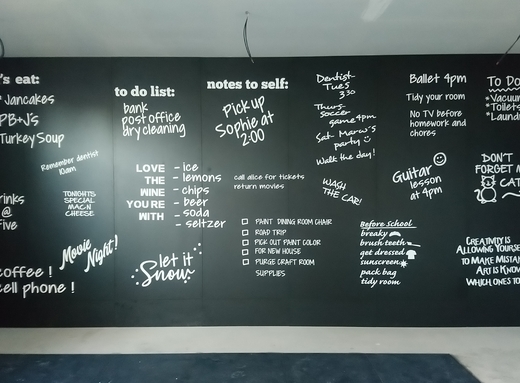 's eat:
Jancakes
PB+J's
Turkey Soup
Remember dentist
10am
TONIGHTS
SPECIAL
MAC N
CHEESE
rinks
@
five
Movie
Night!
coffee!
cell phone!
to do list:
bank
post office
dry cleaning
LOVE
THE
WINE
YOU'RE
WITH
- ice
- lemons
- chips
- beer
- soda
- seltzer
let it
Snow
notes to self:
Pick up
Sophie at
2:00
call alice for tickets
return movies
PAINT DINING ROOM CHAIR
ROAD TRIP
PICK OUT PAINT COLOR
FOR NEW HOUSE
PURGE CRAFT ROOM
SUPPLIES
Dentist
Tues
3:30
Thurs.
soccer
game 4pm
Sat. Marco's
party
Walk the day!
WASH
THE CAR!
Before School
breaky
brush teeth
get dressed
sunscreen
pack bag
tidy room
Ballet 4pm
Tidy your room
No TV before
homework and
chores
Guitar
lesson
at 4pm
To Do
*Vacuu
*Toilets
*Laund
DON'T
FORGET
CAT
CREATIVITY IS
ALLOWING YOURSE
TO MAKE MISTAK
ART IS KNOW
WHICH ONES TO